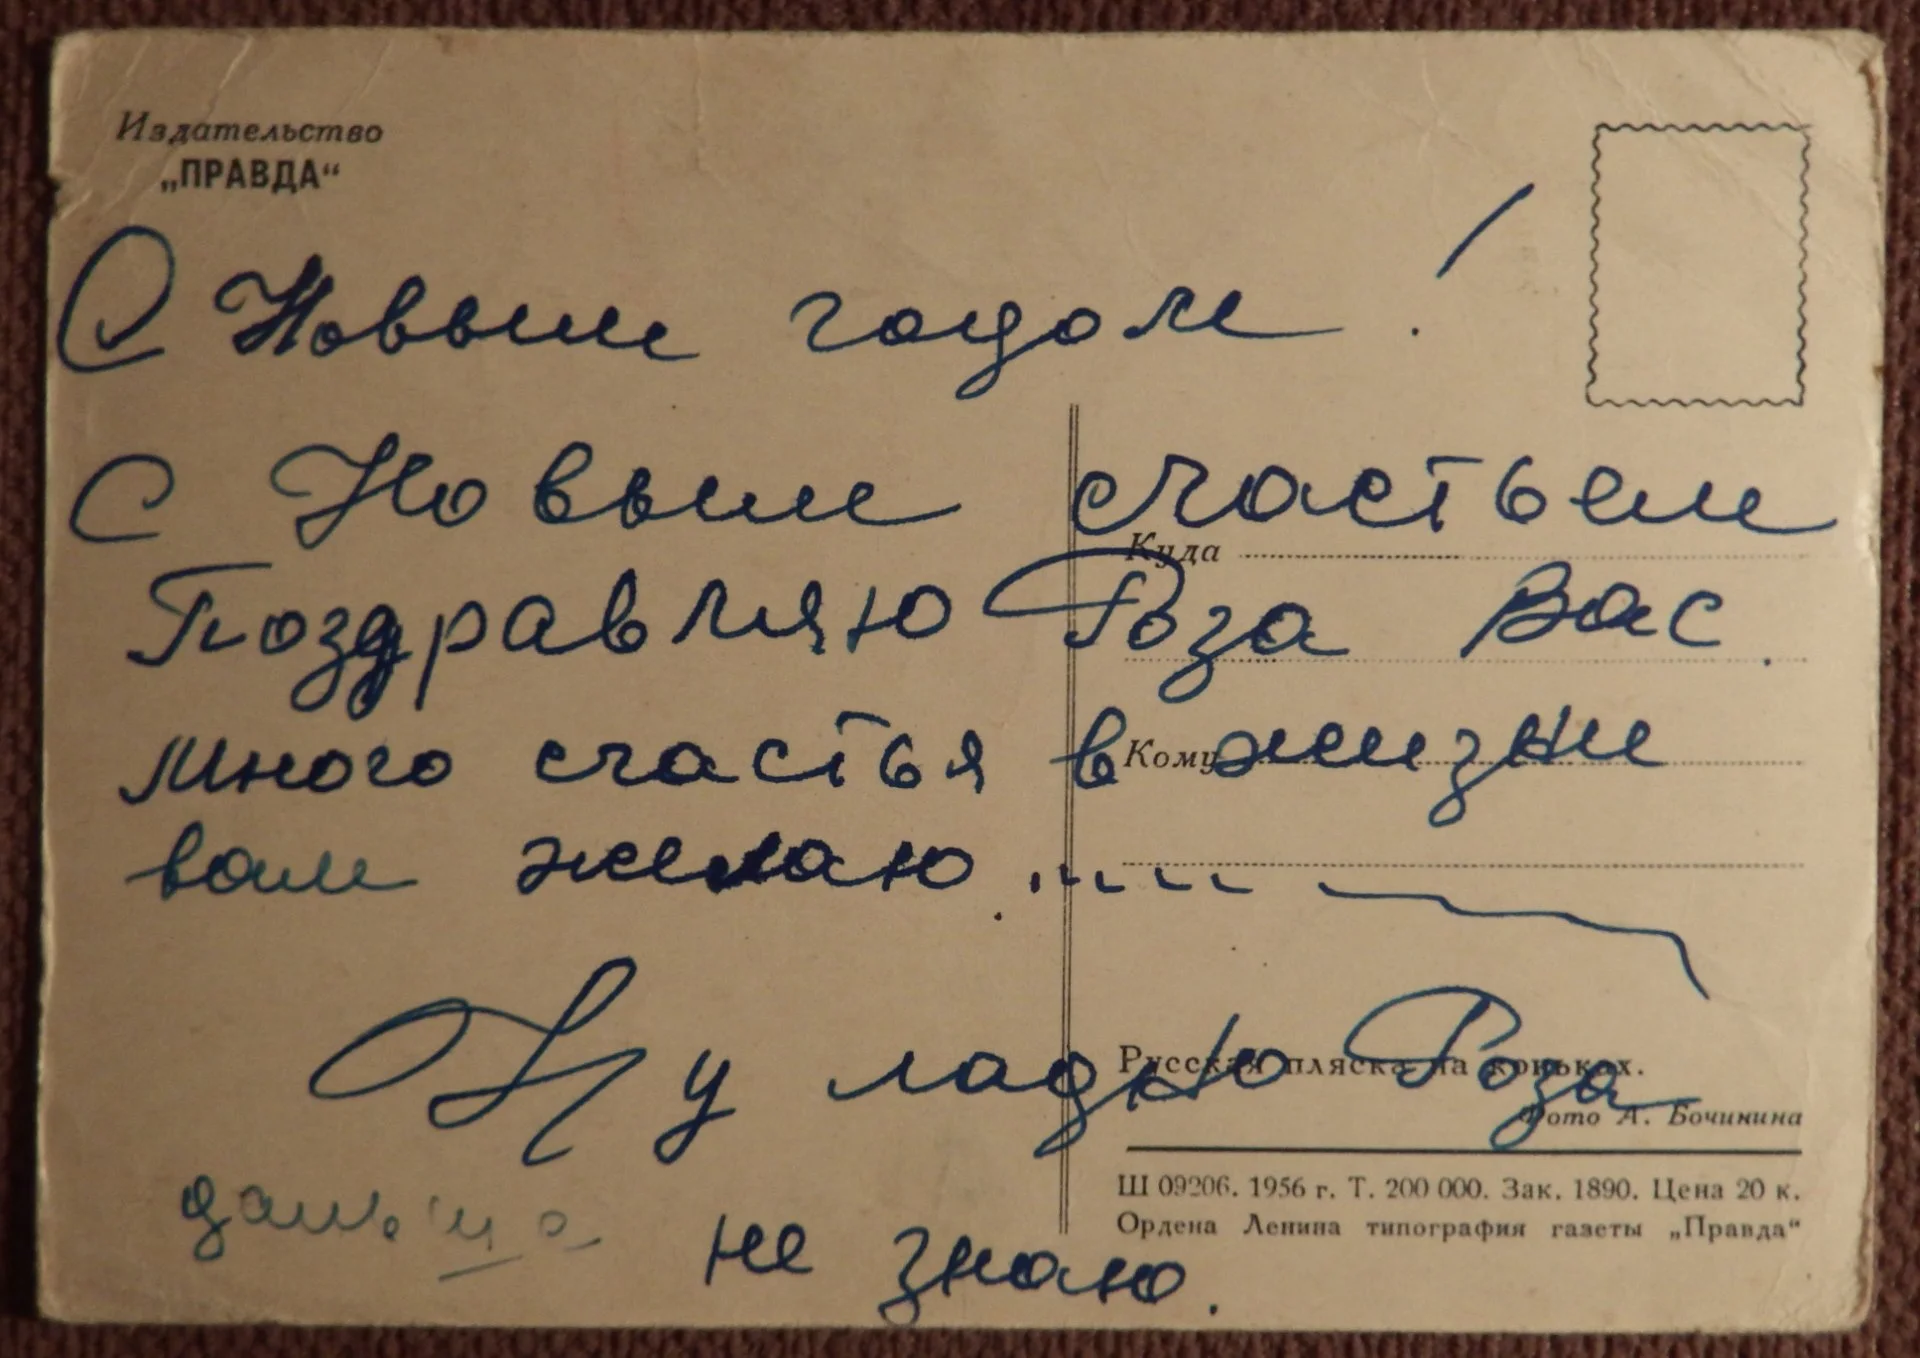 Издательство
„ПРАВДА“
С Новым годом!
С Новым счастьем
Куда
Поздравляю Роза Вас.
много счастья в жизни
Кому
вам желаю.....
Ну ладно Роза
Русская пляска на коньках.
Фото А. Бочинина
Ш 09206. 1956 г. Т. 200 000. Зак. 1890. Цена 20 к.
Ордена Ленина типография газеты „Правда“
не знаю.